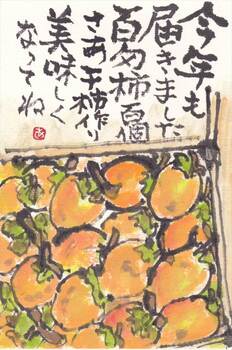 今年も
届きました
百匁柿百個
さあ干柿作り
美味しく
なってね